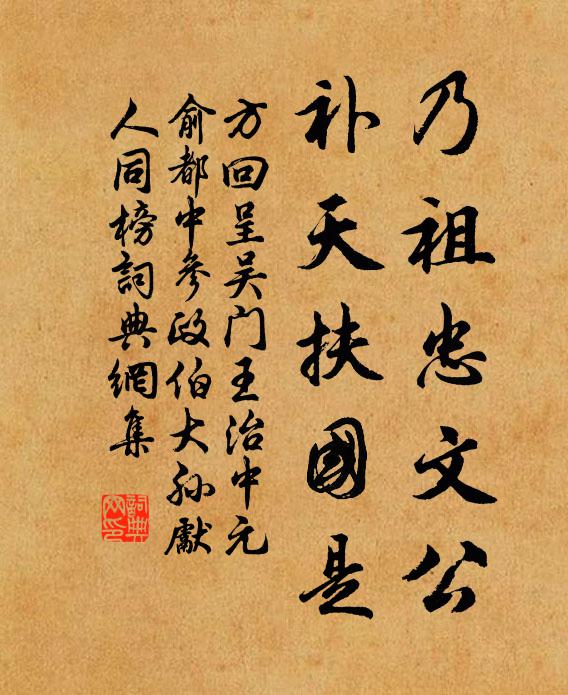 乃祖忠文公
补天扶國是
方回呈吴门王治中元
俞都中参政伯大孙獻
人同榜詞典網集
詞典網印